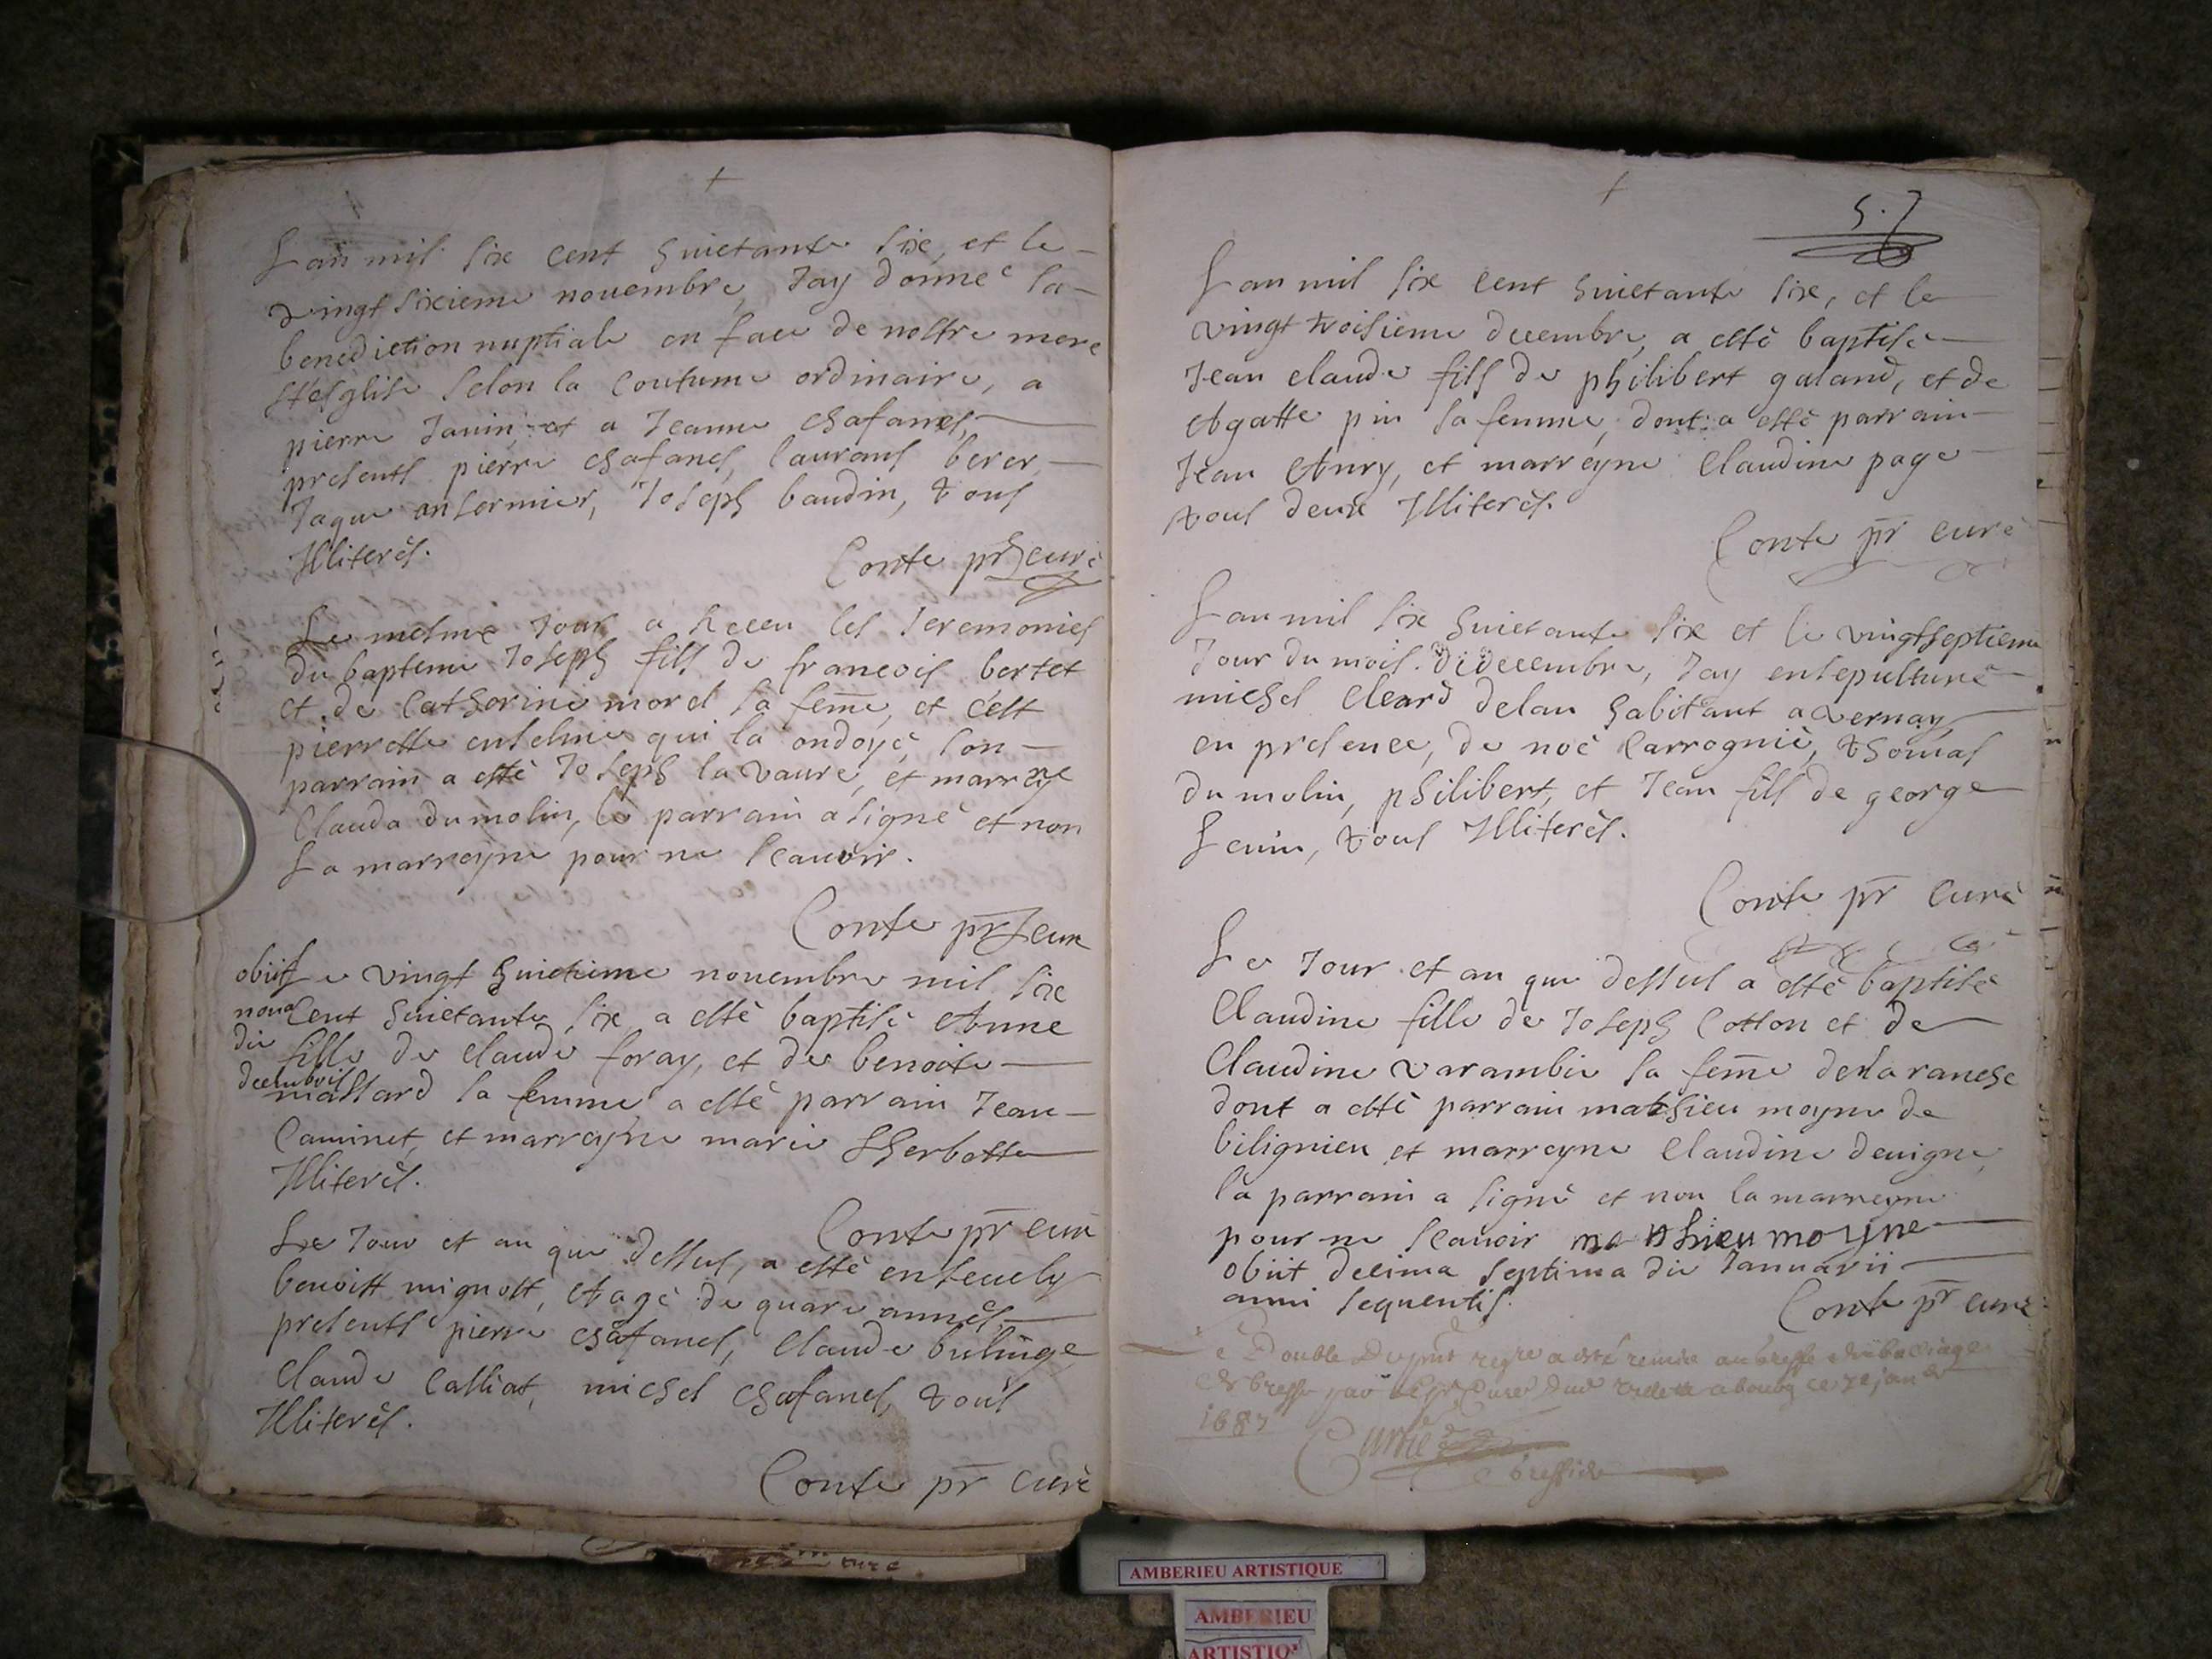 Lan mil six cent huictante six, et le
vingt sixieme nouembre, Jay donné la
benediction nuptiale en face de nostre mere
Ste esglise selon la coutume ordinaire, a
pierre Janin, et a Jeanne chafanel,
presents pierre chafanel, laurans berer,
Jaque ansermier, Joseph baudin, tous
Illiterés.
Conte pr curé
Le mesme Jour a Receu les seremonies
du bapteme Joseph fils de francois bertet
et de Catherine morel sa feme, et cest
pierrette enselme qui la ondoyé, son
parrain a esté Joseph la vaure, et marrayne
Clauda du molin, le parrain a signé et non
La marreyne pour ne scauoir.
Conte pr curé
Le vingt huictieme nouembre mil six
obiit
nona
die
decembris
Cent huictante six a esté baptisé Anne
fille de Claude foray, et de benoite
mallard sa femme a esté parrain Jean
Caminet, et marreyne marie Sherbotte
Illiterés.
Conte pr curé
Le Jour et an que dessus, a esté enseuely
benoist mignost, Et agé de quare annés,
presents pierre chafanel, Claude bulinge
Claude Calliat, michel chafanel, tous
Illiterés.
Conte pr curé
5.7
Lan mil six cent huictante six, et le
vingt troisieme decembre, a esté baptisé
Jean claude fils de philibert galand, et de
Agatte pin sa femme, dont a esté parrain
Jean Anry, et marreyne Claudine page
tous deux Illiterés.
Conte pr curé
Lan mil six huictante six et le vingtseptieme
Jour du mois de decembre, Jay ensepulturé
michel Cleard delan habitant a vernay,
en presence, de noé Carrognié, thomas
du molin, philibert, et Jean fils de george
Lenin, tous Illiterés.
Conte pr curé
Le Jour et an que dessus a esté baptisé
Claudine fille de Joseph Cotton et de
Claudine varambie sa feme delaranche
dont a esté parrain mathieu moyne de
bilignieu et marreyne Claudine deuigne,
le parrain a signé et non la marreyne
pour ne scauoir mathieu moyne
obiit decima septima die Januarii
anni sequentis.
Conte pr curé
Le Double du pnt regre a esté remis au greffe du bailliage
de bresse par le sr Curé a bourg ce janer
1687
AMBERIEU ARTISTIQUE
AMBERIEU
ARTISTIQ